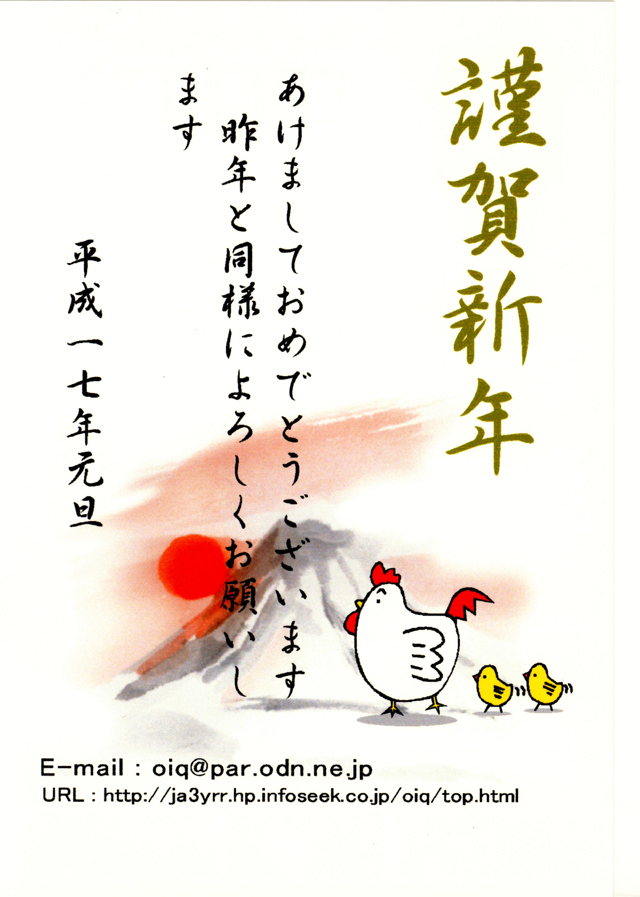 謹賀新年
あけましておめでとうございます
昨年と同様によろしくお願いし
ます
平成一七年元旦
E-mail : oiq@par.odn.ne.jp
URL : http://ja3yrr.hp.infoseek.co.jp/oiq/top.html